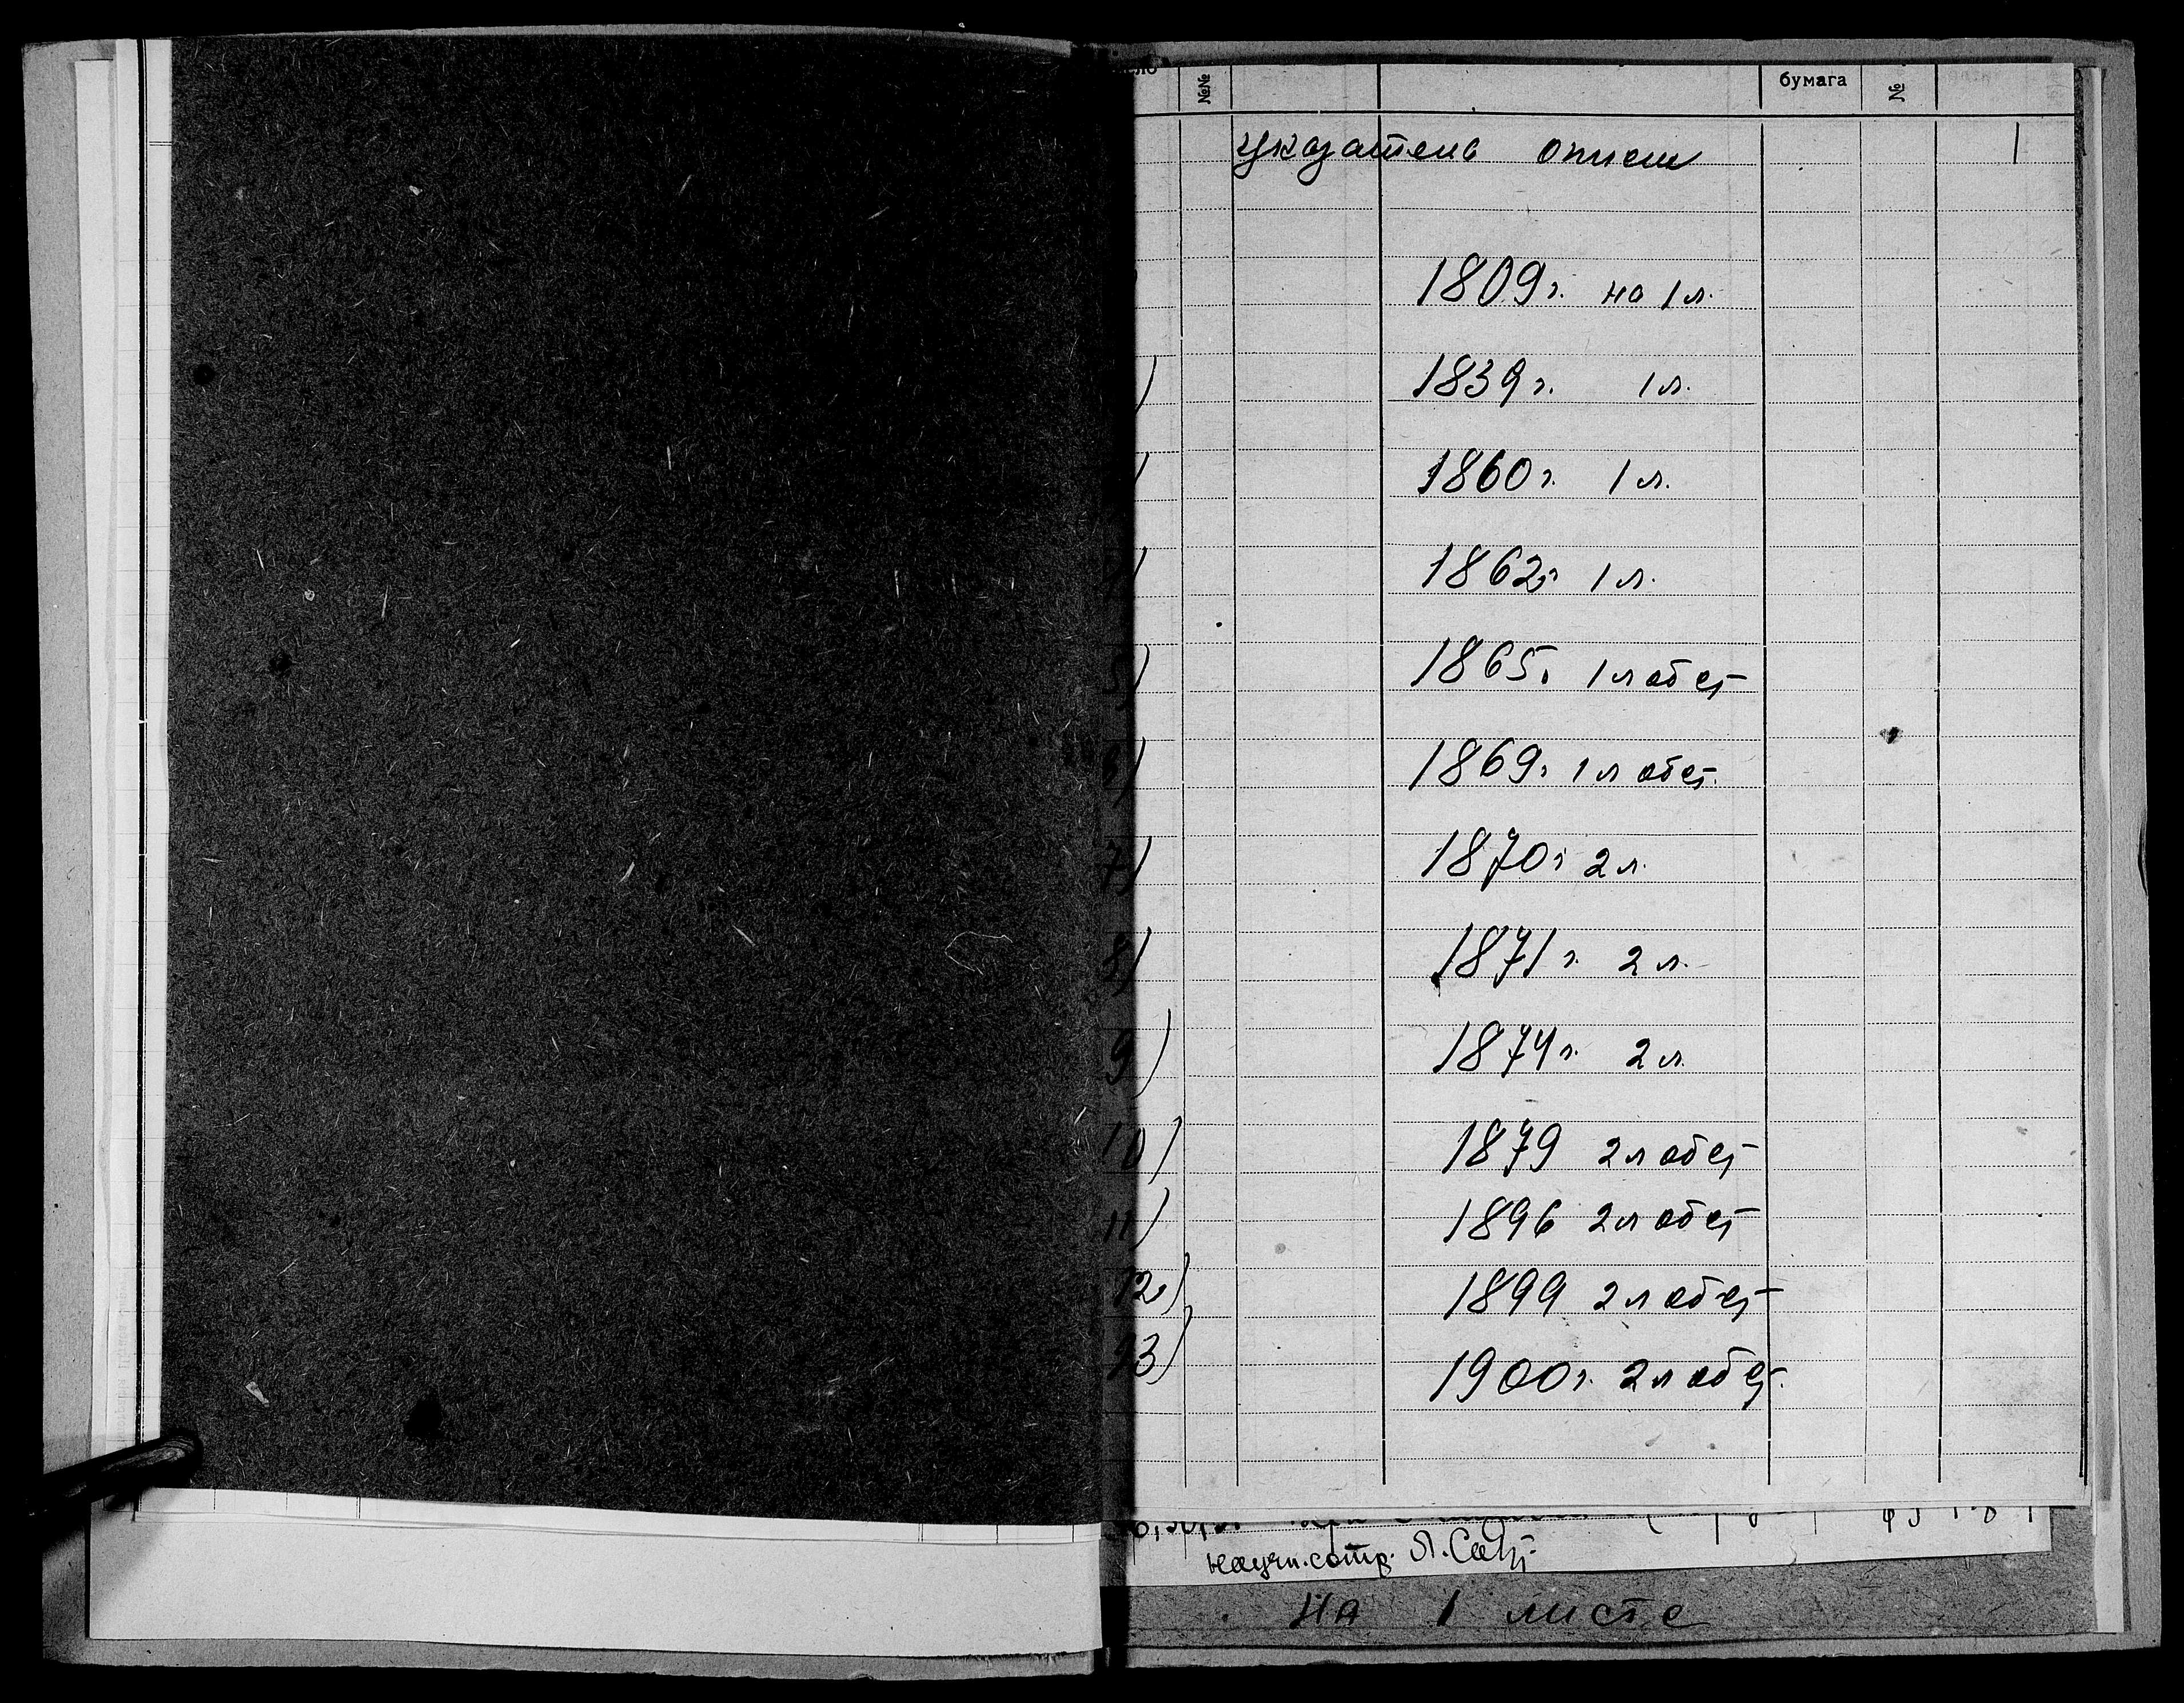 №№ бумага №
указатель описи 1
1809 г. на 1 л.
1839 г. 1 л.
1860 г. 1 л.
1862 г 1 л.
5) 1865. 1 л обст
6) 1869 г 1 л обст.
7) 1870 г 2 л.
8) 1871 г. 2 л.
9) 1874 г. 2 л.
10) 1879 2 л обст
11) 1896 2 л обст
12) 1899 2 л обст
13) 1900 г. 2 л обст.
научн. сотр. Л.
на 1 листе